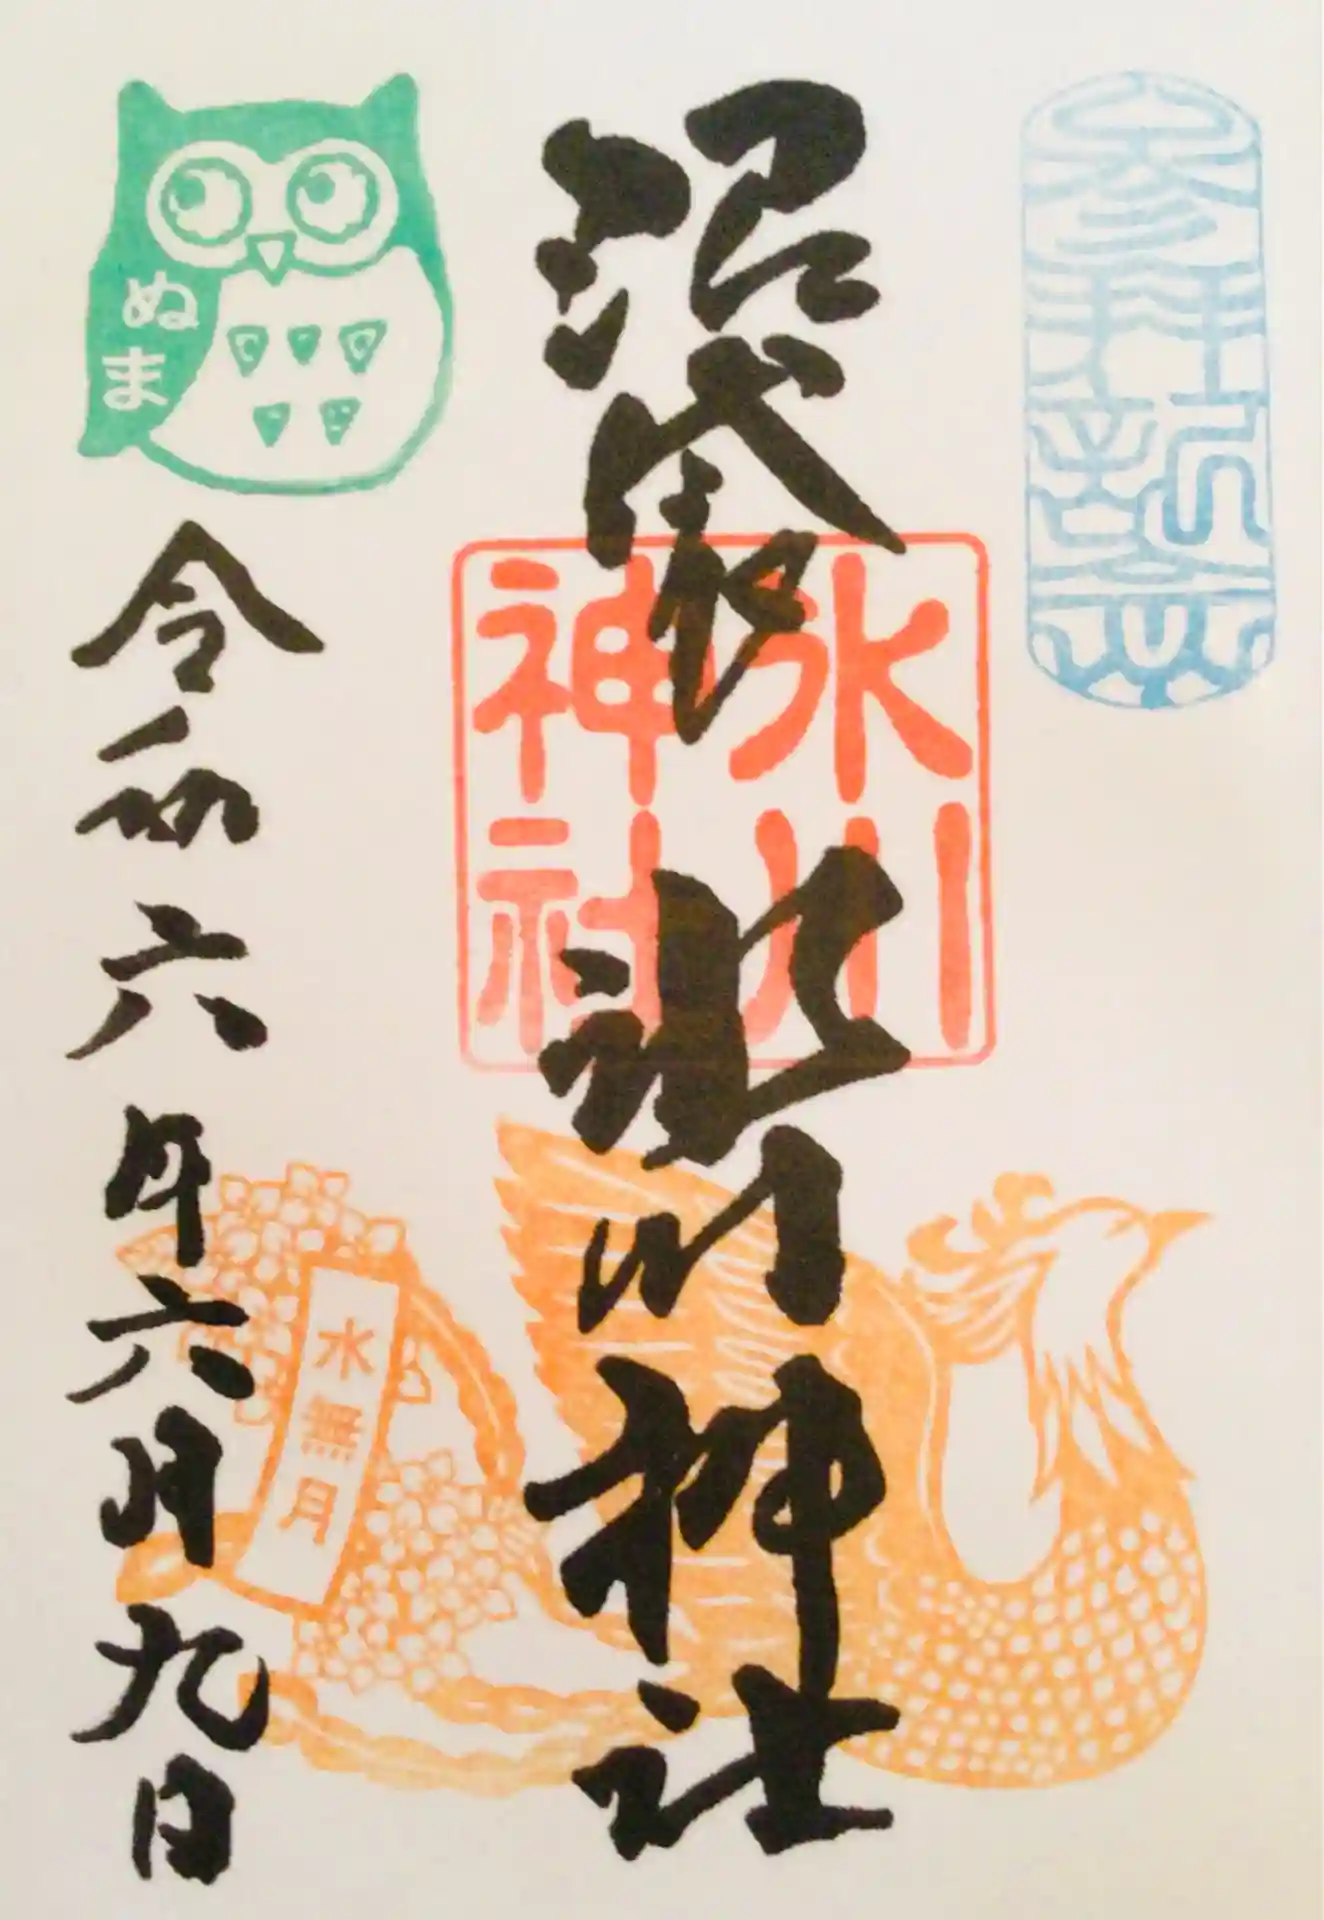 沼袋氷川神社
氷川
神社
ぬま
令和六年六月九日
水無月